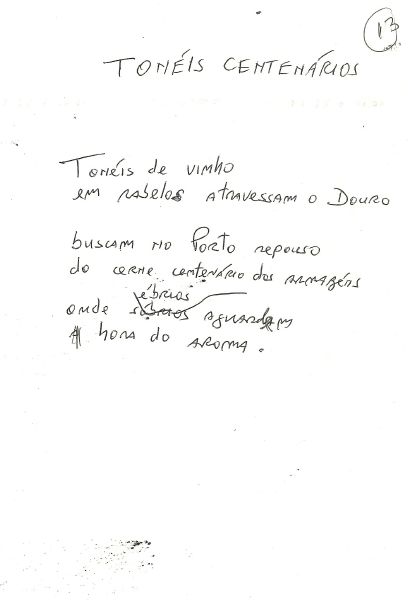 13
TONÉIS CENTENÁRIOS
Tonéis de vinho
em rabelos atravessam o Douro
buscam no Porto repouso
do cerne centenário dos armazéns
ébrios
onde sóbrios aguardam
a hora do aroma.